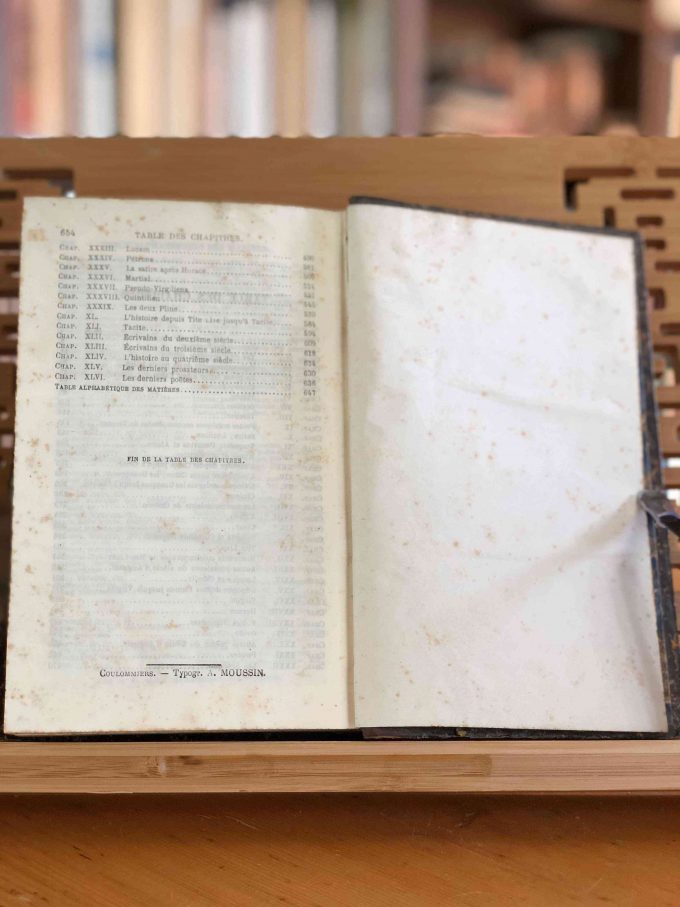 654 TABLE DES CHAPITRES.
CHAP. XXXIII. Lucain
CHAP. XXXIV. Pétrone
CHAP. XXXV. La satire après Horace
CHAP. XXXVI. Martial
CHAP. XXXVII. Pseudo-Virgiliana
CHAP. XXXVIII. Quintilien
CHAP. XXXIX. Les deux Pline
CHAP. XL. L'histoire depuis Tite Live jusqu'à Tacite
CHAP. XLI. Tacite
CHAP. XLII. Écrivains du deuxième siècle
CHAP. XLIII. Écrivains du troisième siècle
CHAP. XLIV. L'histoire au quatrième siècle
CHAP. XLV. Les derniers prosateurs 630
CHAP. XLVI. Les derniers poëtes 636
TABLE ALPHABÉTIQUE DES MATIÈRES 647
FIN DE LA TABLE DES CHAPITRES.
COULOMMIERS. — Typogr. A. MOUSSIN.